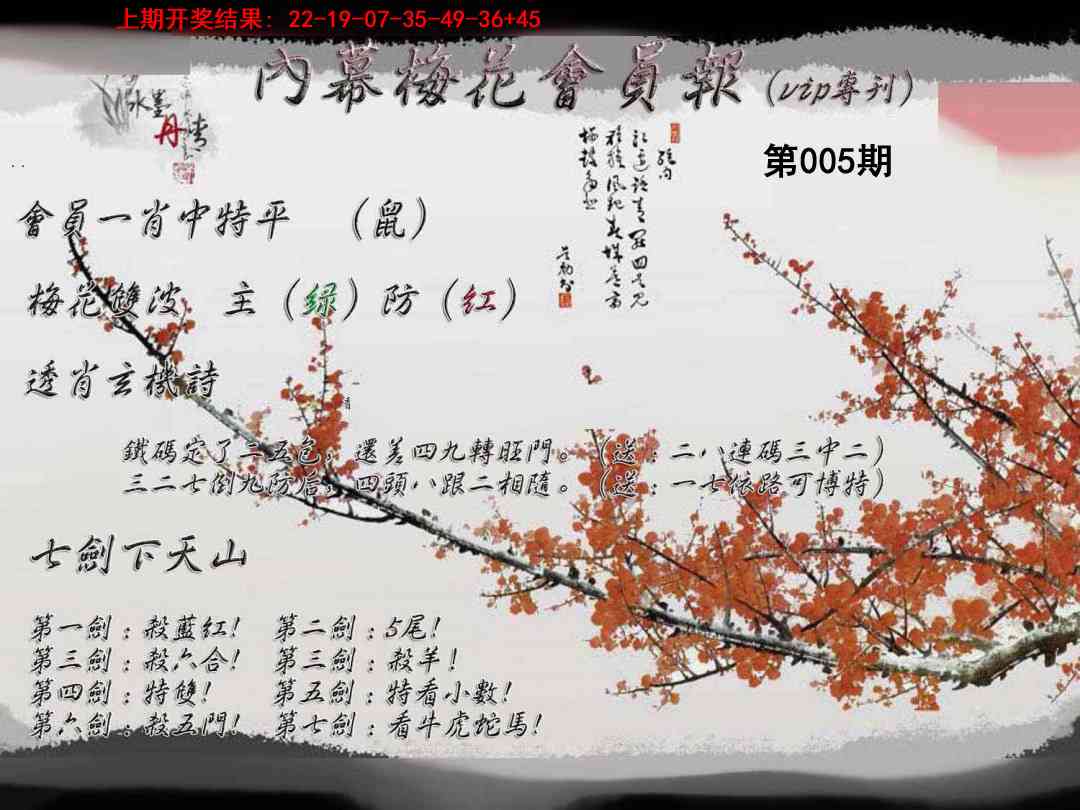 上期开奖结果: 22-19-07-35-49-36+45
內幕梅花會員報(vip專刊)
水墨
丹青
第005期
會員一肖中特平 (鼠)
梅花雙波 主(绿)防(红)
透肖玄機詩
鐵碼定了二五包，還差四九轉旺門。(送:二八連碼三中二)
三二七倒九防后，四頭八跟二相隨。(送:一七依路可博特)
七劍下天山
第一劍:殺藍紅! 第二劍:5尾!
第三劍:殺六合! 第三劍:殺羊!
第四劍:特雙! 第五劍:特看小數!
第六劍:殺五門! 第七劍:看牛虎蛇馬!